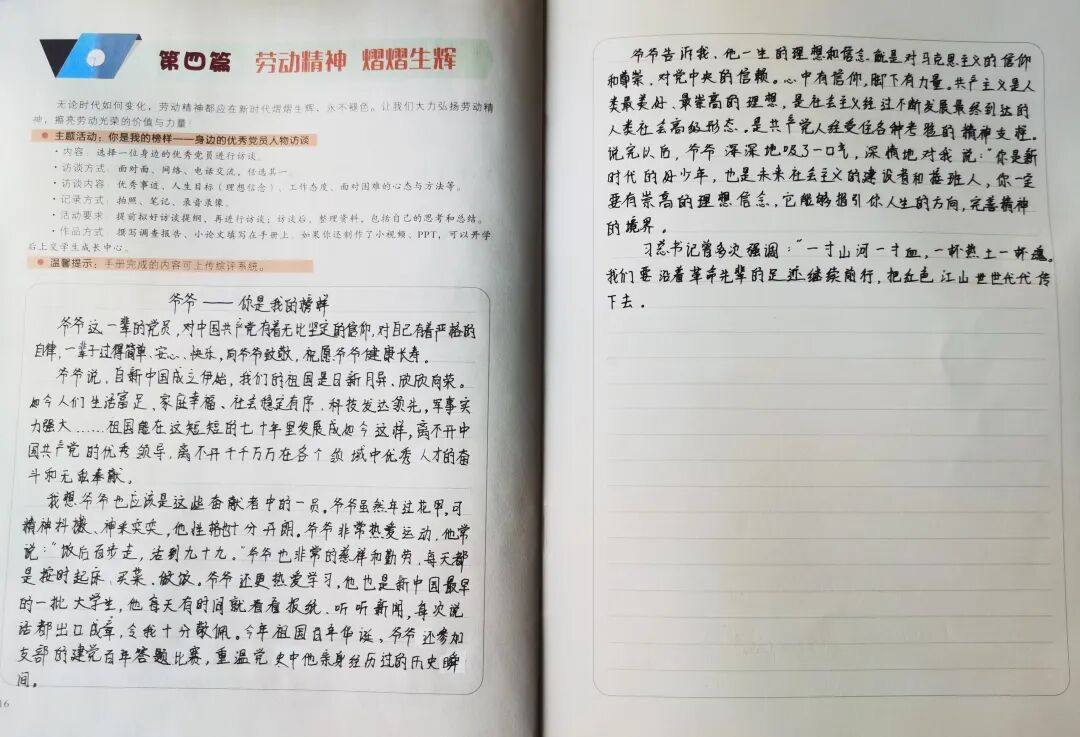 第四篇 劳动精神 熠熠生辉
无论时代如何变化，劳动精神都应在新时代熠熠生辉、永不褪色。让我们大力弘扬劳动精
神，擦亮劳动光荣的价值与力量！
● 主题活动：你是我的榜样——身边的优秀党员人物访谈
·内容：选择一位身边的优秀党员进行访谈。
·访谈方式：面对面、网络、电话交流，任选其一。
·访谈内容：优秀事迹、人生目标（理想信念）、工作态度、面对困难的心态与方法等。
·记录方式：拍照、笔记、录音录像。
·活动要求：提前拟好访谈提纲，再进行访谈；访谈后，整理资料，包括自己的思考和总结。
·作品方式：撰写调查报告、小论文填写在手册上，如果你还制作了小视频、PPT，可以开学
后上交学生成长中心。
● 温馨提示：手册完成的内容可上传综评系统。
爷爷——你是我的榜样
爷爷这一辈的党员，对中国共产党有着无比坚定的信仰，对自己有着严格的
自律，一辈子过得简单、安心、快乐，向爷爷致敬，祝愿爷爷健康长寿。
爷爷说，自新中国成立伊始，我们的祖国是日新月异、欣欣向荣。
如今人们生活富足、家庭幸福、社会稳定有序、科技发达领先，军事实
力强大……祖国能在这短短的七十年里发展成如今这样，离不开中
国共产党的优秀领导，离不开千千万万在各个领域中优秀人才的奋
斗和无私奉献。
我想爷爷也应该是这些奋献者中的一员。爷爷虽然年过花甲，可
精神抖擞、神采奕奕，他性格十分开朗。爷爷非常热爱运动，他常
说：“饭后百步走，活到九十九。”爷爷也非常的慈祥和勤劳，每天都
是按时起床、买菜、做饭。爷爷还更热爱学习，他也是新中国最早
的一批大学生，他每天有时间就看看报纸、听听新闻，每次说
话都出口成章，令我十分敬佩。今年祖国百年华诞，爷爷还参加
支部的建党百年答题比赛，重温党史中他亲身经历过的历史瞬
间。
16
爷爷告诉我，他一生的理想和信念就是对马克思主义的信仰
和尊崇，对党中央的信赖。心中有信仰，脚下有力量。共产主义是人
类最美好、最崇高的理想，是社会主义经过不断发展最终到达的
人类社会高级形态。是共产党人经受住各种考验的精神支柱。
说完以后，爷爷深深地吸了一口气，深情地对我说：“你是新
时代的好少年，也是未来社会主义的建设者和接班人，你一定
要有崇高的理想信念，它能够指引你人生的方向，完善精神
的境界。
习总书记曾多次强调：“一寸山河一寸血，一杯热土一杯魂。
我们要沿着革命先辈的足迹继续前行，把红色江山世世代代传
下去。